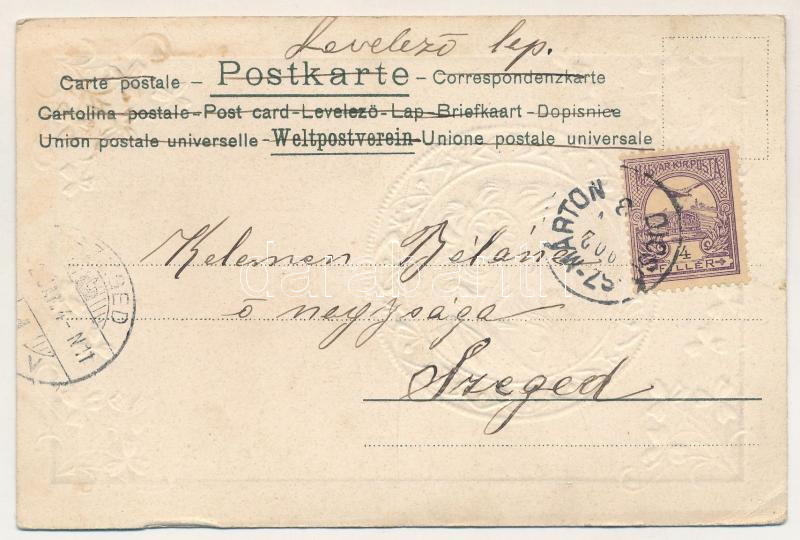 Levelező lap.
Carte postale – Postkarte – Correspondenzkarte
Cartolina postale – Post card – Levelező - Lap - Briefkaart - Dopisnice
Union postale universelle – Weltpostverein – Unione postale universale
MAGYAR KIR. POSTA
4
FILLÉR
MÁRTON
Kelemen Béláné
ő nagysága
Szeged
darabanth